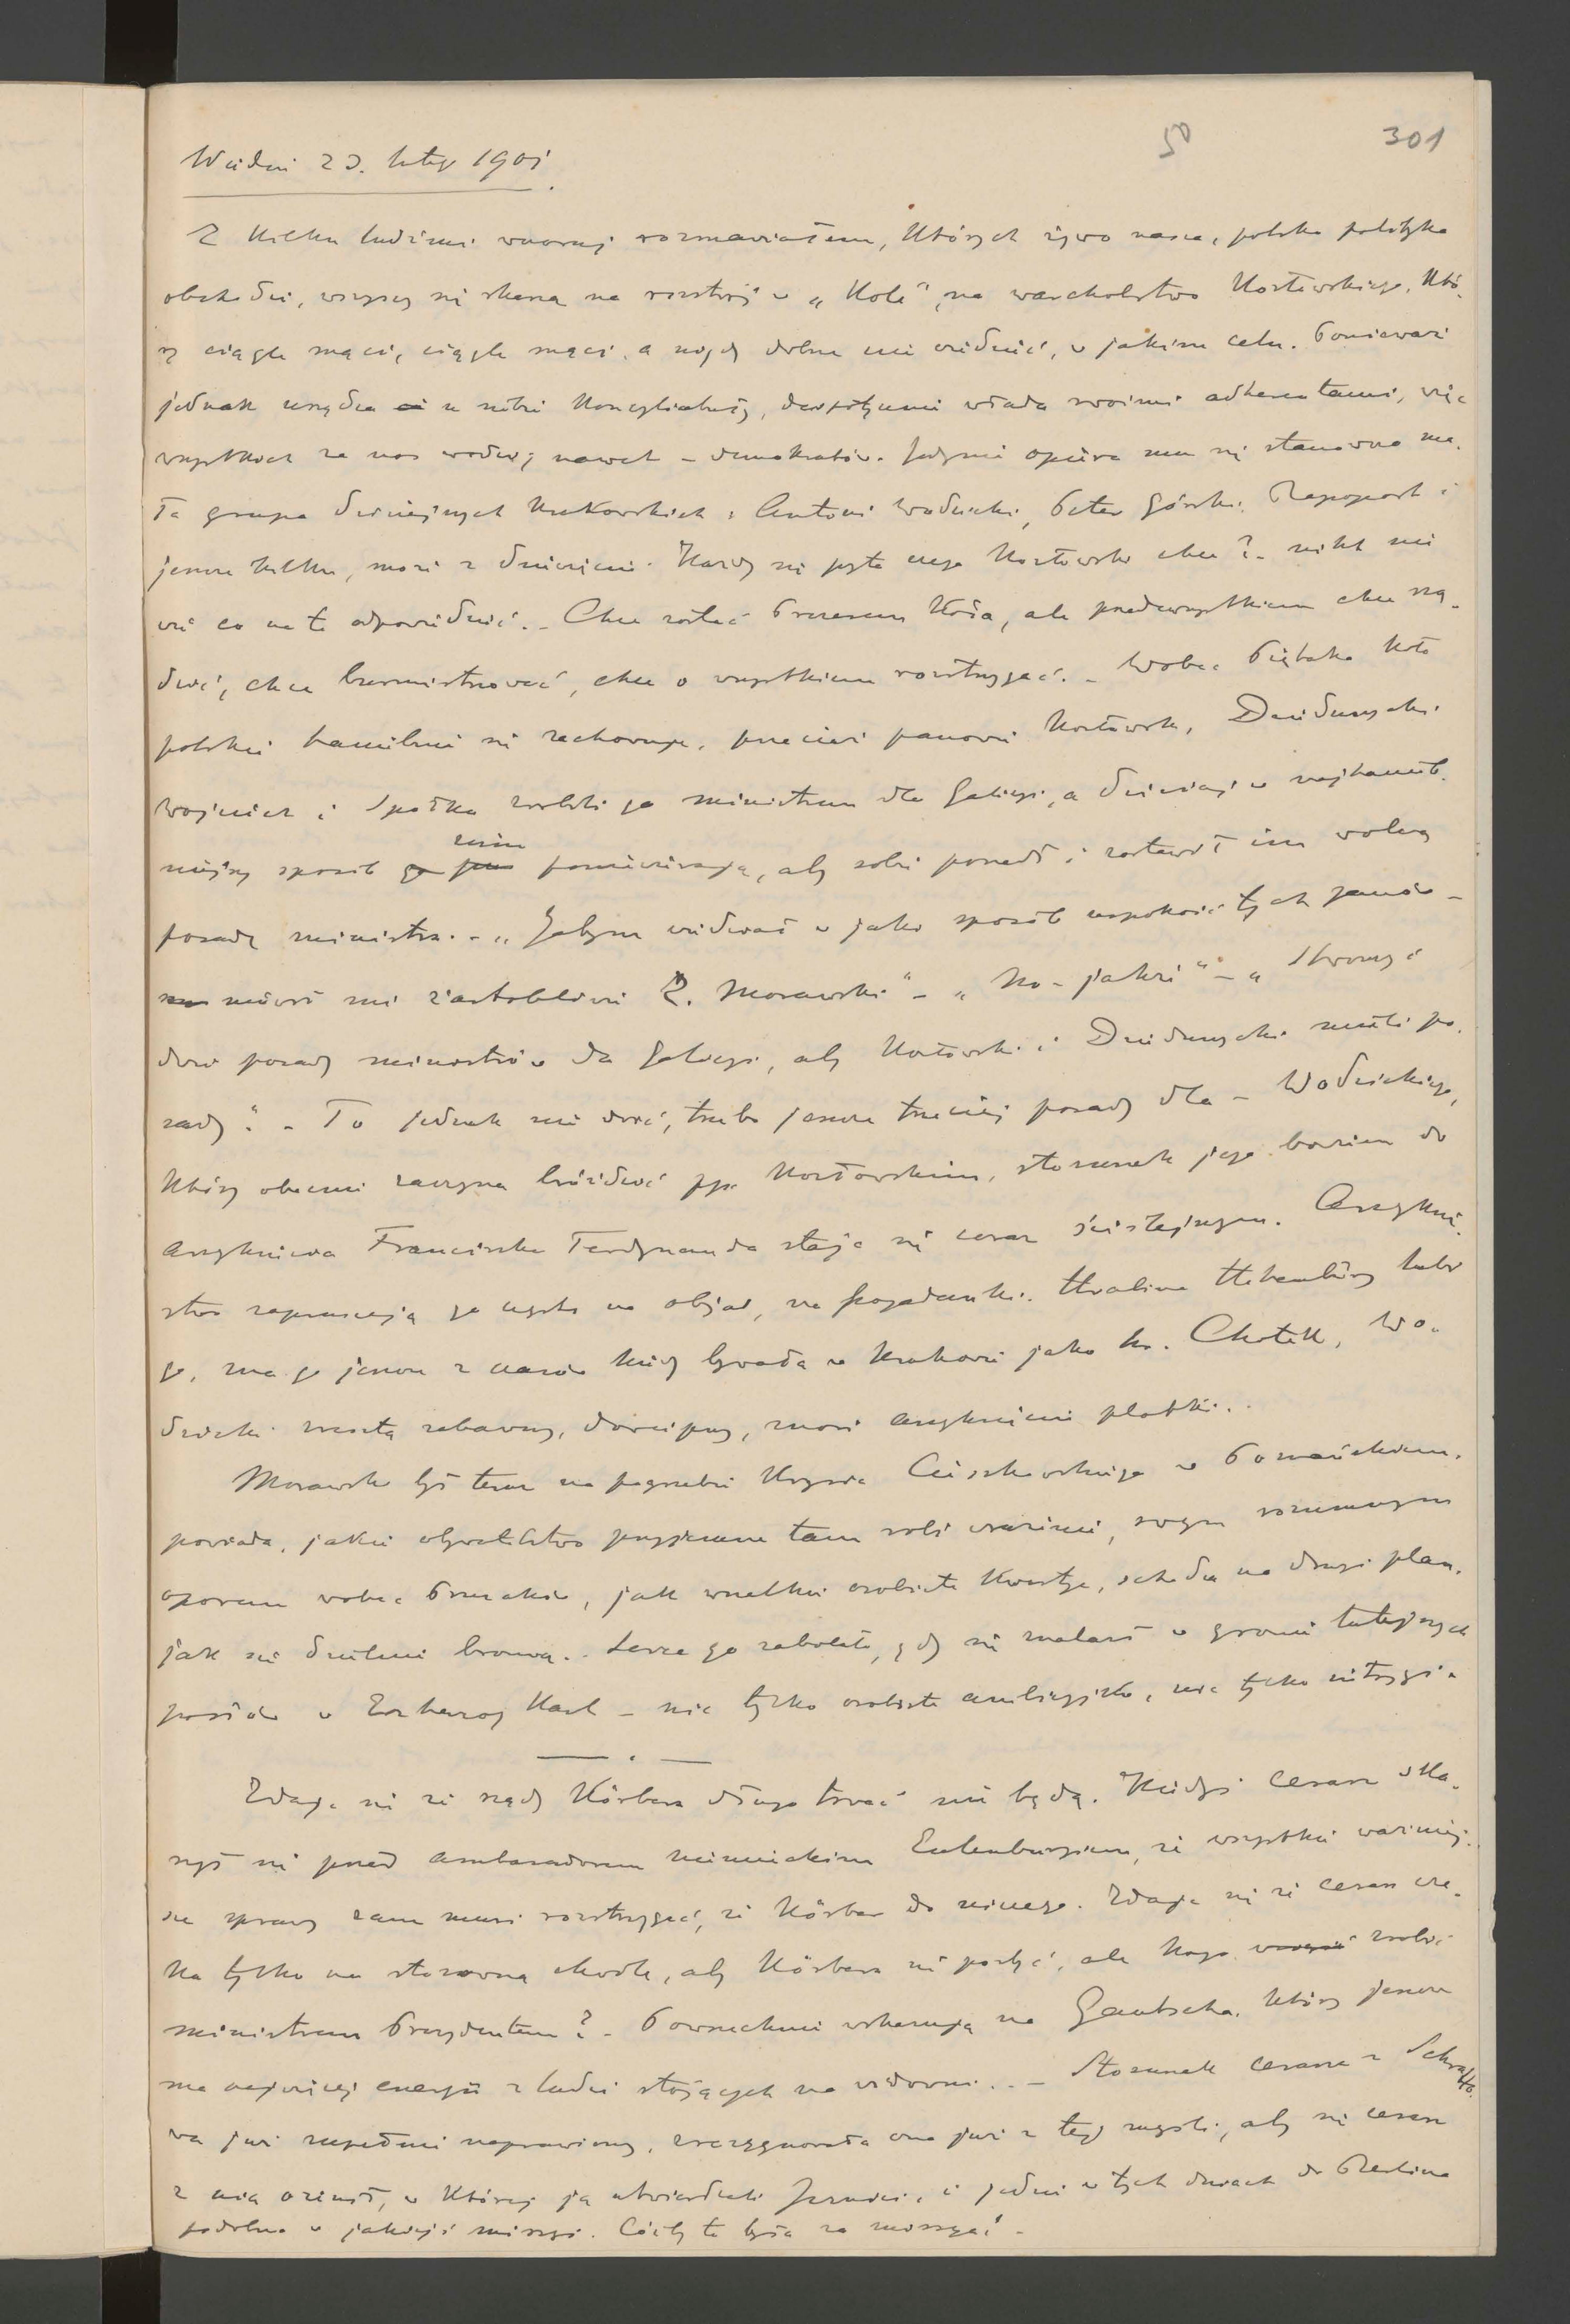 50 301
Wiedeń 23. lutego 1901.
Z kilku ludźmi wczoraj rozmawiałem, których żywo nasza, polska polityka
obchodzi, wszyscy się skarżą na rozstrój w „Kole", na warcholstwo Kozłowskiego, któ-
ry ciągle mąci, ciągle mąci, a nigdy dobrze nie wiedzieć, w jakim celu. Ponieważ
jednak urządza w sobie , despotycznie włada swoimi adherentami, więc
wszystkich za nos wodzi, nawet – demokratów. Jedynie opiera mu się stanowczo ma-
ła grupa dawniejszych krakowskich: Antoni Wodzicki, Peter Górski, Rapoport i
jeszcze kilku, może z dziesięciu. Każdy się pyta czego Kozłowski chce? – nikt nie
wie co na to odpowiedzieć. – Chce zostać Prezesem Koła, ale przedewszystkiem chce rzą-
dzić, chce burmistrzować, chce o wszystkiem rozstrzygać. – Wobec Piętaka Koło
polskie haniebnie się zachowuje, przecież panowie Kozłowski, Dzieduszycki
Wojciech i Spółka zrobili go ministrem dla Galicyi, a dzisiaj w najhanieb-
niejszy sposób
nim
poniewierają, aby sobie poszedł i zostawił im wolną
posadę ministra. – „Jabym wiedział w jaki sposób uspokoić tych panów –
mówił mi żartobliwie Z. Morawski" – „No – jakże" – „Stworzyć
dwie posady ministrów dla Galicyi, aby Kozłowski i Dzieduszycki mieli po-
sady". – To jednak nie dość, trzeba jeszcze trzeciej posady dla – Wodzickiego,
który obecnie zaczyna bruździć pp. Kozłowskim, stosunek jego bowiem do
arcyksięcia Franciszka Ferdynanda staje się coraz ściślejszym. Arcyksię-
stwo zapraszają go często na objad, na pogadanki. Hrabina Hohenberg lubi
go, zna go jeszcze z czasów kiedy bywała w Krakowie jako hr. Chotek, Wo-
dzicki zresztą zabawny, dowcipny, znosi arcyksięciu plotki..
Morawski był teraz na pogrzebie Krzysia Cieszkowskiego w Poznańskiem,
powiada, jakie obywatelstwo przyjemne tam robi wrażenie, swym rozumnym
oporem wobec Prusaków, jak wszelkie osobiste kwestye, schodzą na drugi plan,
jak się dzielnie bronią.. Serce go zabolało, gdy się znalazł w gronie tutejszych
posłów w – nic tylko osobiste ambicyjki, nic tylko intrygi.
Zdaje się że rządy Körbera długo trwać nie będą. Kiedyś cesarz ska-
rżył się przed ambasadorem niemieckim Eulenburgiem, że wszystkie ważniej-
sze sprawy sam musi rozstrzygać, że Körber do niczego. Zdaje się że cesarz cze-
ka tylko na stosowną chwilę, aby Körbera się pozbyć, ale kogo zrobić
ministrem Prezydentem? – Powszechnie wskazują na Gautscha, który jeszcze
ma najwięcej energii z ludzi stojących na widowni.. – Stosunek cesarza z Schratto-
wą już zupełnie naprawiony, zrezygnowała ona już z tej myśli, aby się cesarz
z nią ożenił, w której ją utwierdzali Jezuici, i jedzie w tych dniach do Berlina
podobno w jakiejś missyi. Cóżby to była za missya? –